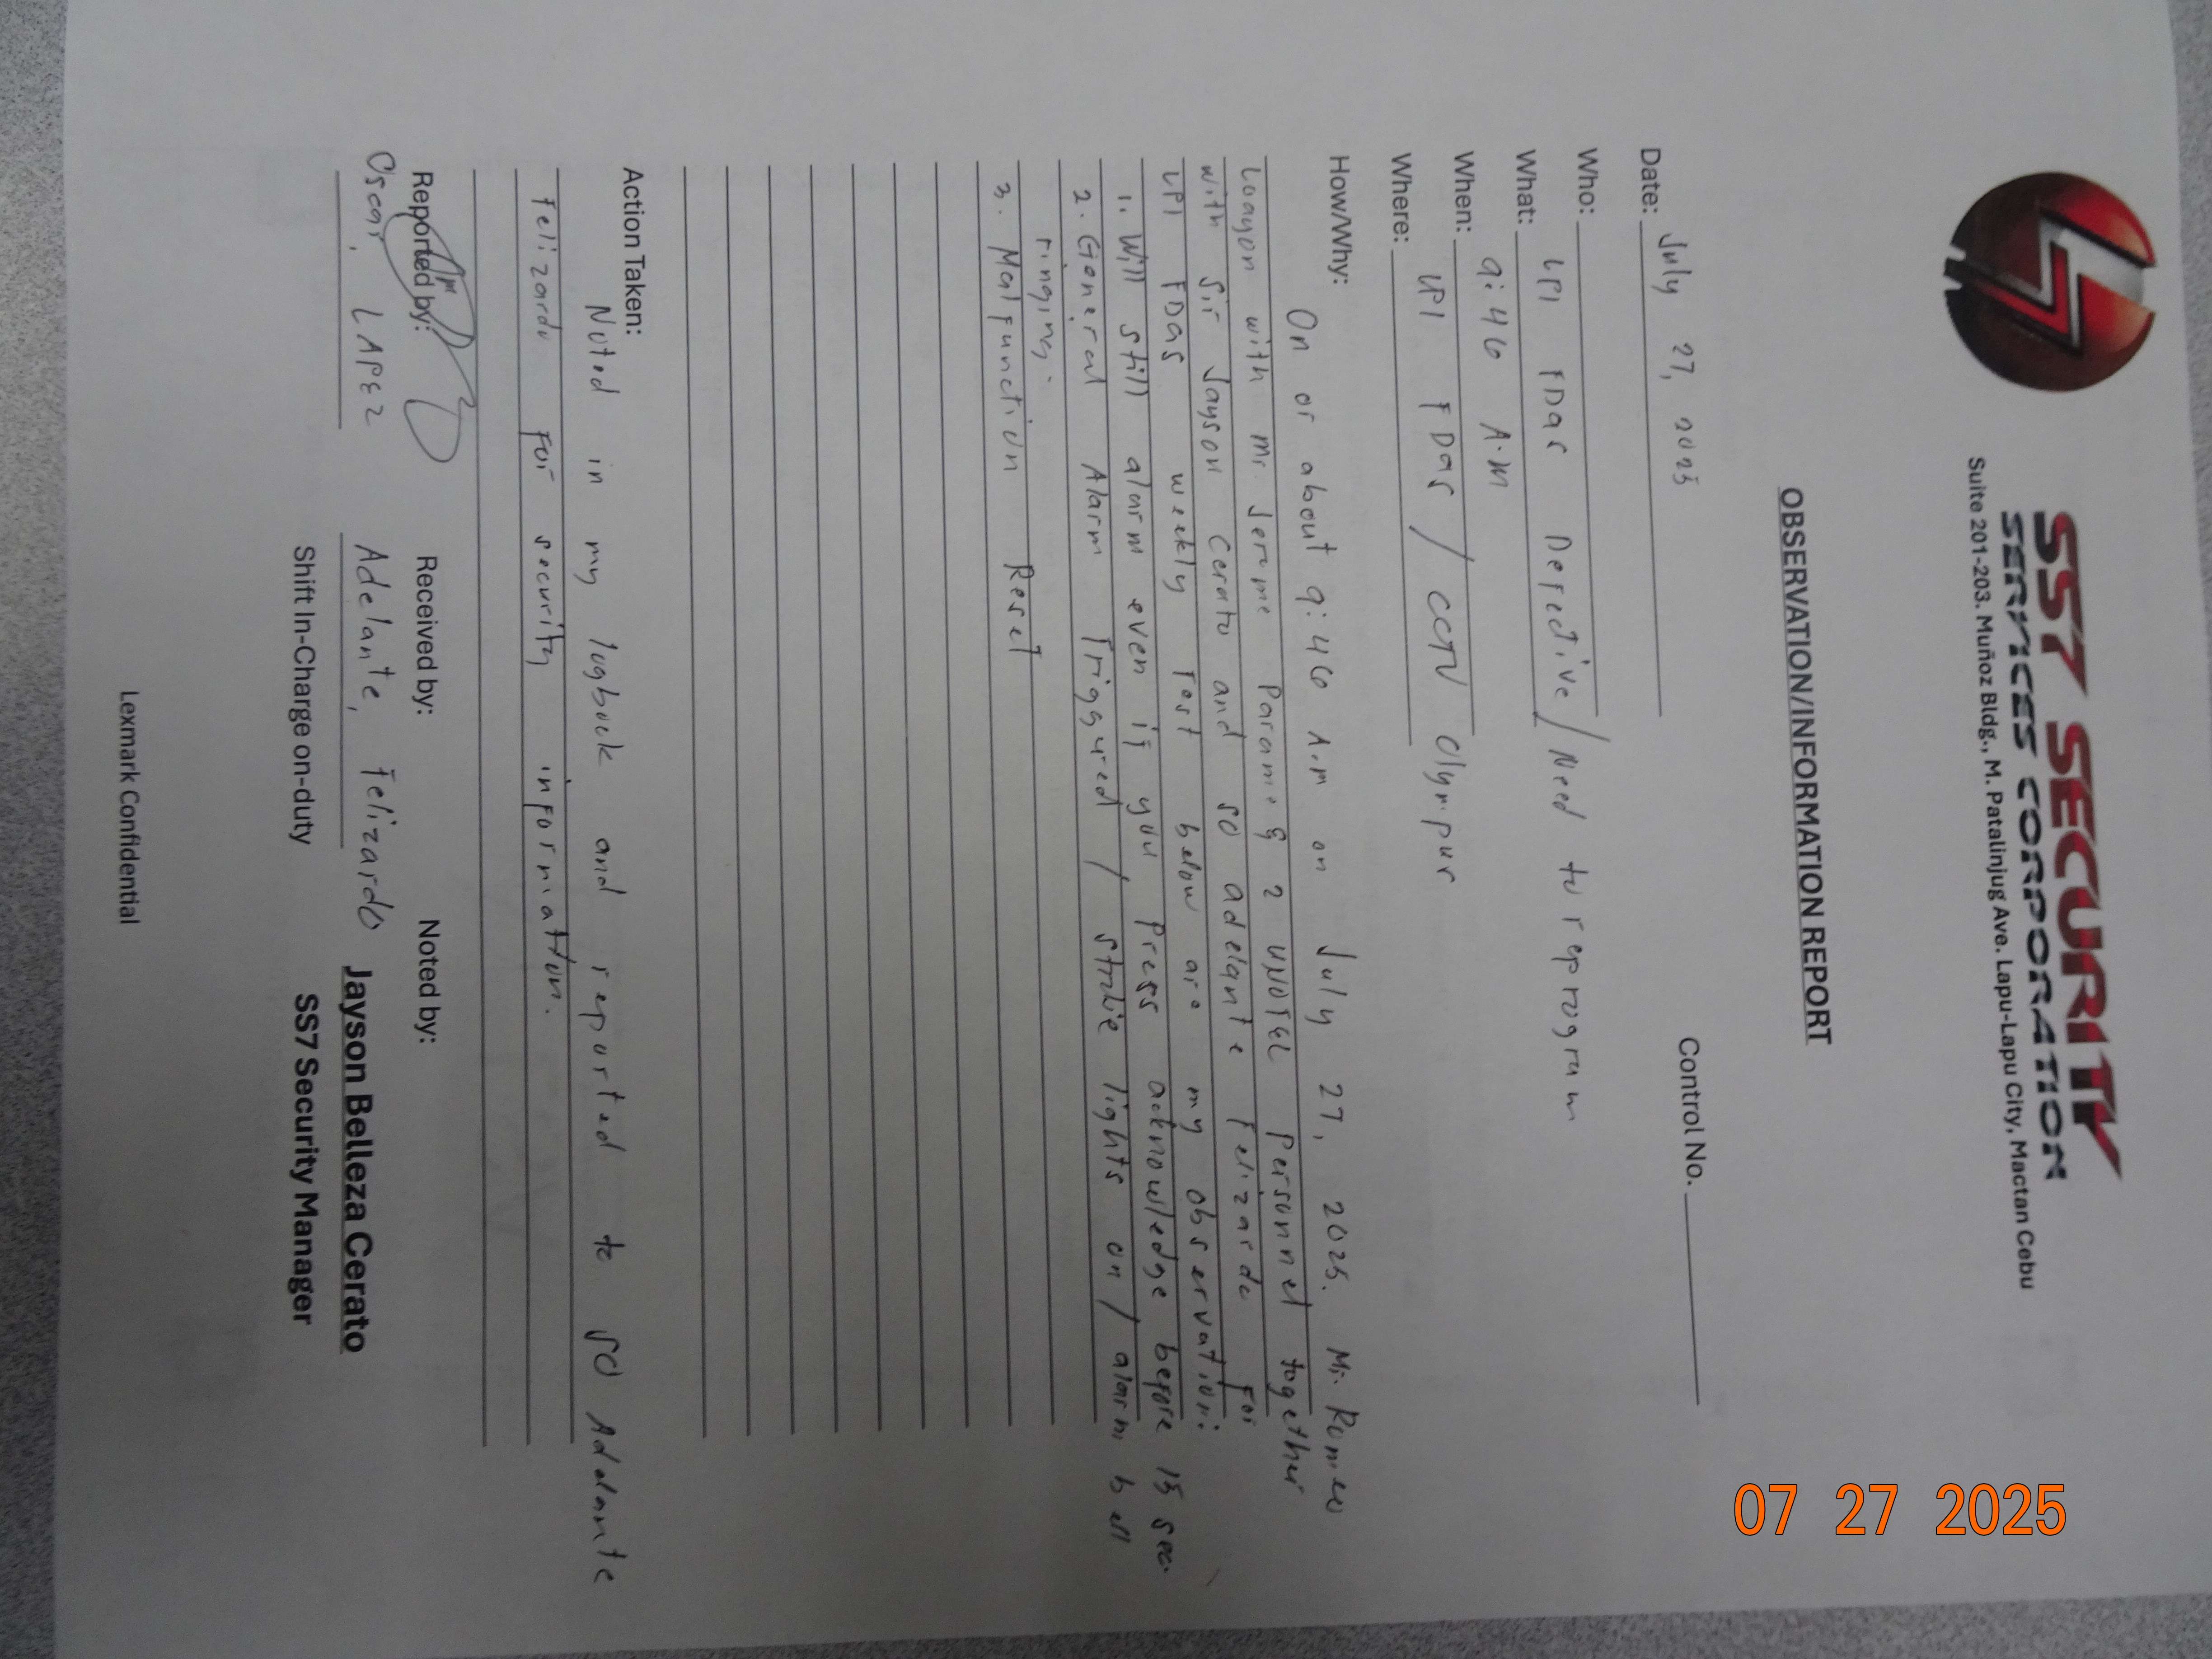 SS7 SECURITY
SERVICES CORPORATION
Suite 201-203. Muñoz Bldg., M. Patalinjug Ave. Lapu-Lapu City, Mactan Cebu
OBSERVATION/INFORMATION REPORT
Control No.
Date: July 27, 2025
Who:
What: LPI FDas Defective/Need to reprogram
When: 9:46 A.M
Where: LPI FDas / CCTV Olympus
How/Why:
On or about 9:46 A.M on July 27, 2025. Mr. Romeo
with Mr Jerome & 2 Personnel together
with Sir Jayson Cerato and SO adelante Felizardo For
LPI FDas weekly Test below are my observation:
1. Will still alarm even if you Press acknowledge before 15 sec.
2. General Alarm Triggured / strobe lights on / alarm bell
ringing.
3. Malfunction Reset
Action Taken:
Noted in my logbook and reported to SO Adelante
Felizardo For security information.
Reported by: Received by: Noted by:
Oscar, LAPEZ Adelante, Felizardo Jayson Belleza Cerato
Shift In-Charge on-duty SS7 Security Manager
Lexmark Confidential
07 27 2025